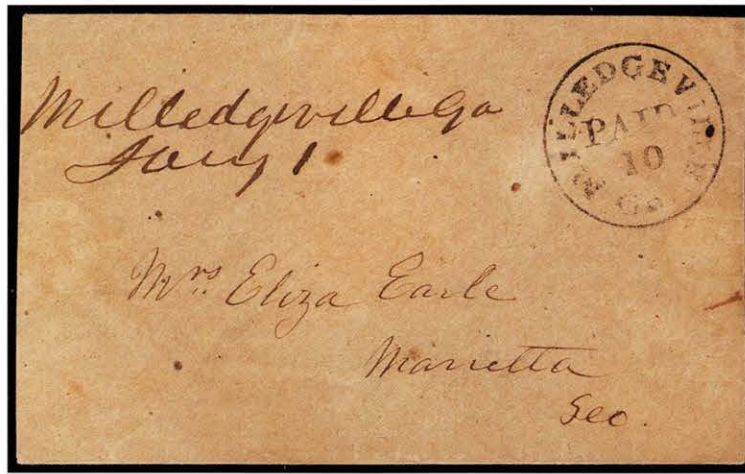 Milledgeville Ga
Jany 1
MILLEDGEVILLE Ga.
PAID
10
Mrs. Eliza Earle
Marietta
Geo.